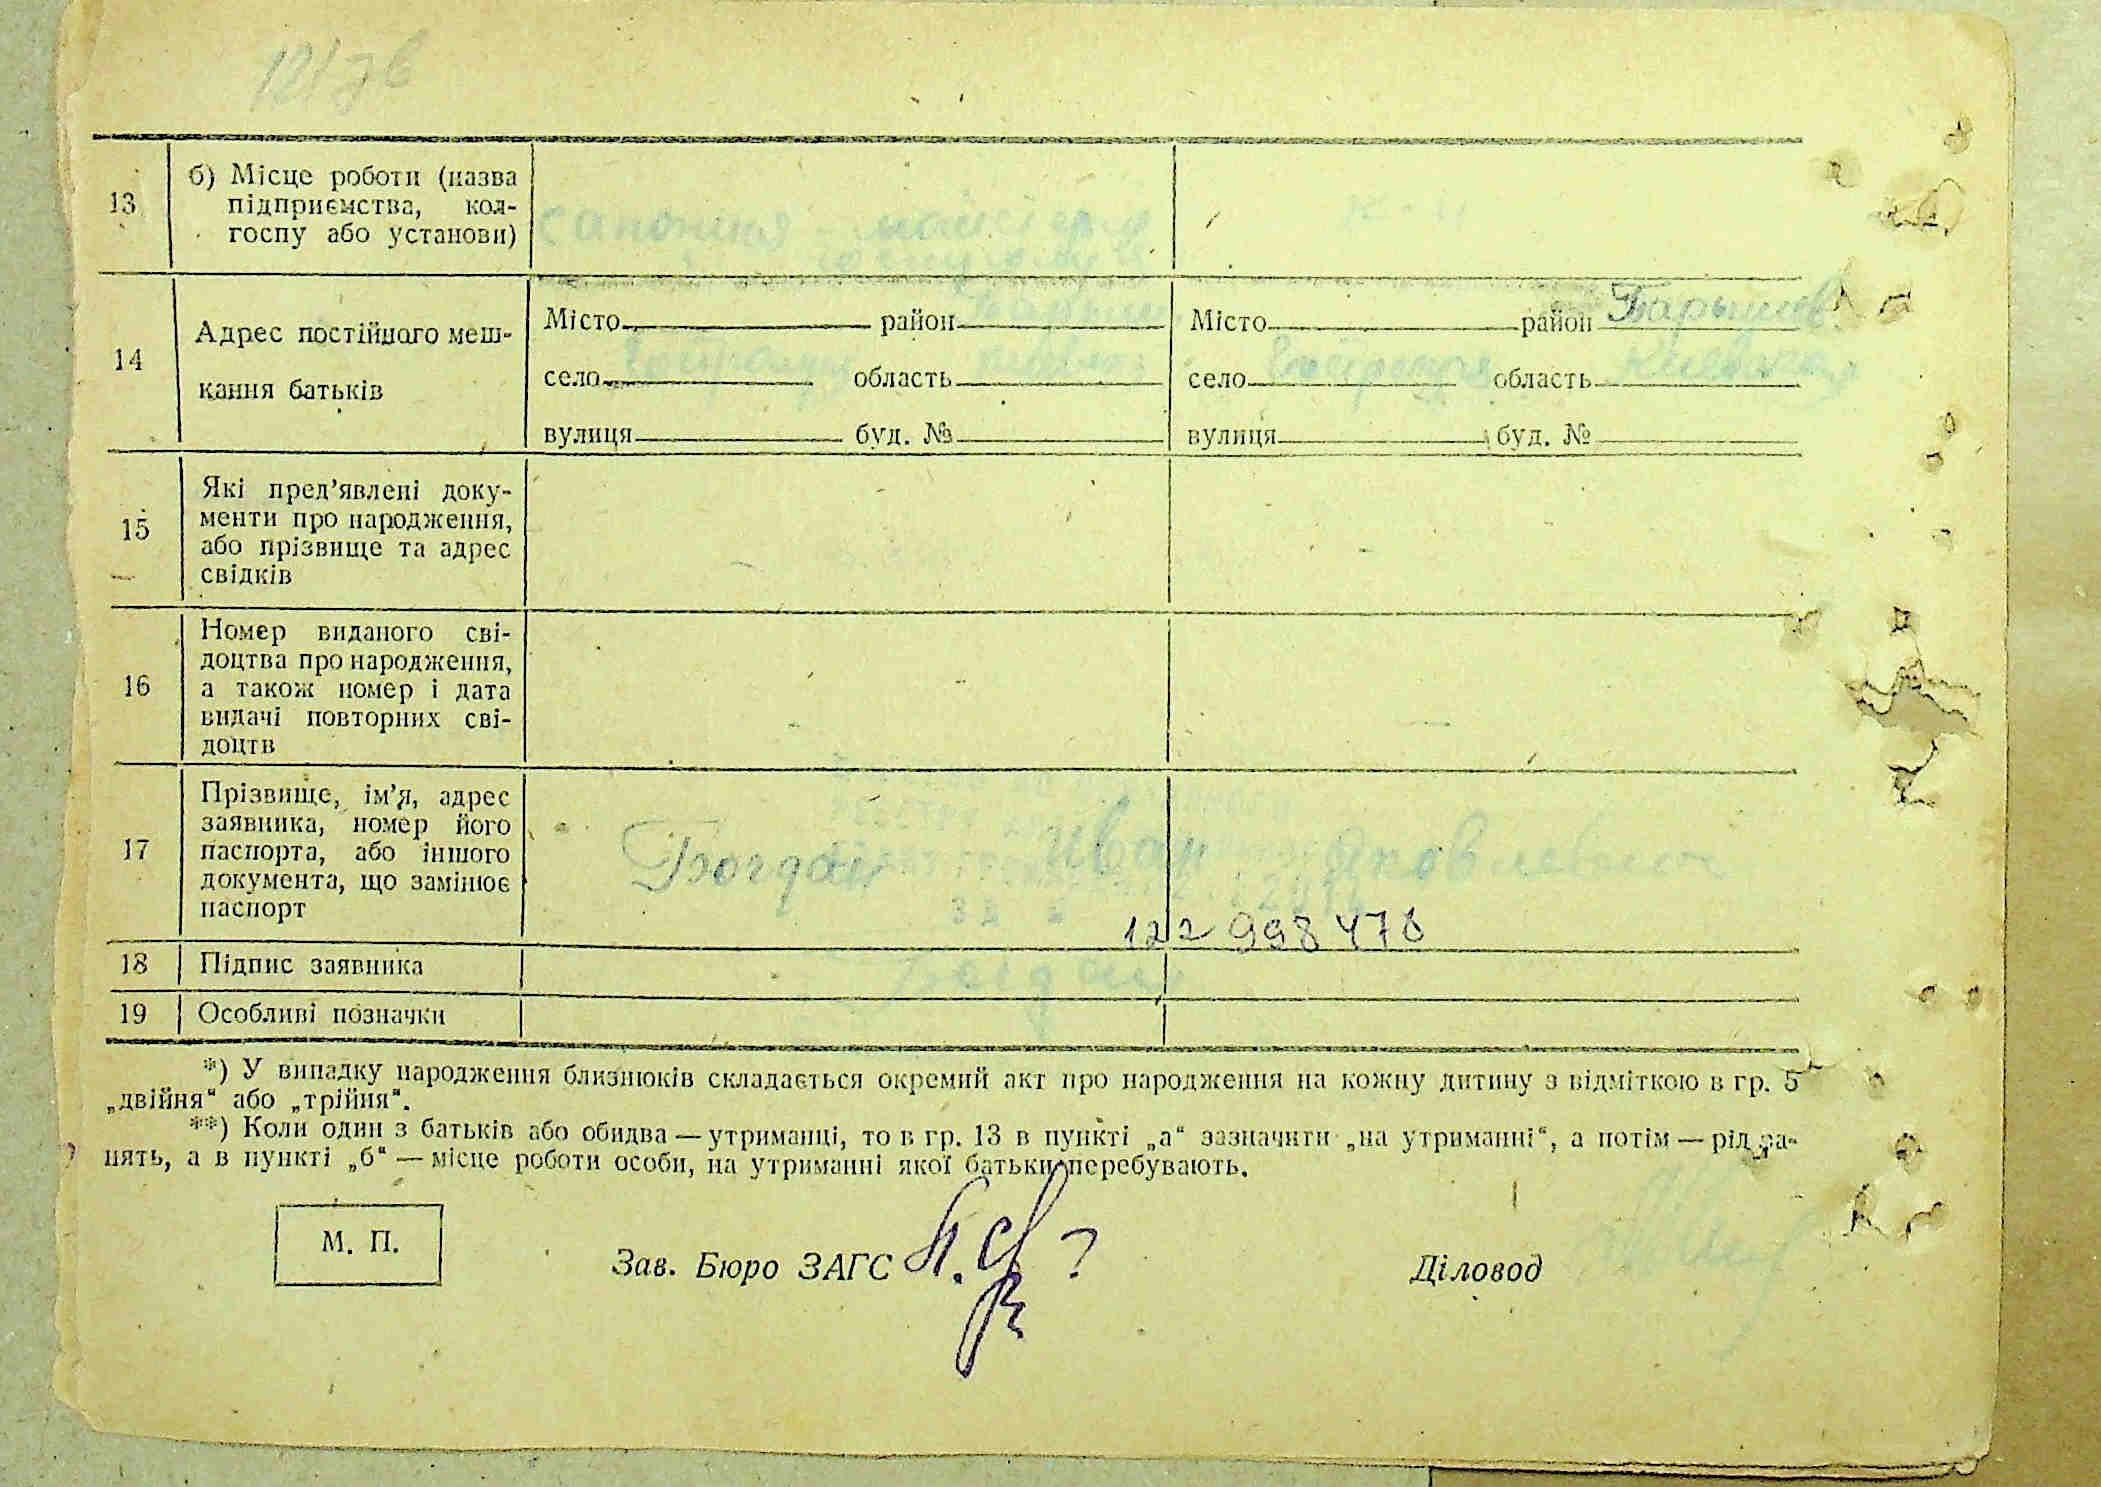 13
б) Місце роботи (назва
підприємства, кол-
госпу або установи)
14
Адрес постійного меш-
кання батьків
Місто район Місто район Барышев
село область село область Киевская
вулиця буд. № вулиця буд. №
15
Які пред’явлені доку-
менти про народження,
або прізвище та адрес
свідків
16
Номер виданого сві-
доцтва про народження,
а також номер і дата
видачі повторних сві-
доцтв
17
Прізвище, ім’я, адрес
заявника, номер його
паспорта, або іншого
документа, що замінює
паспорт
Богдан Иван Яковлевич
122 998478
18 Підпис заявника Богдан
19 Особливі позначки
*) У випадку народження близнюків складається окремий акт про народження на кожну дитину з відміткою в гр. 5
„двійня“ або „трійня“.
**) Коли один з батьків або обидва — утриманці, то в гр. 13 в пункті „а“ зазначити „на утриманні“, а потім — рід за-
нять, а в пункті „б“ — місце роботи особи, на утриманні якої батьки перебувають.
М. П.
Зав. Бюро ЗАГС ?
Діловод